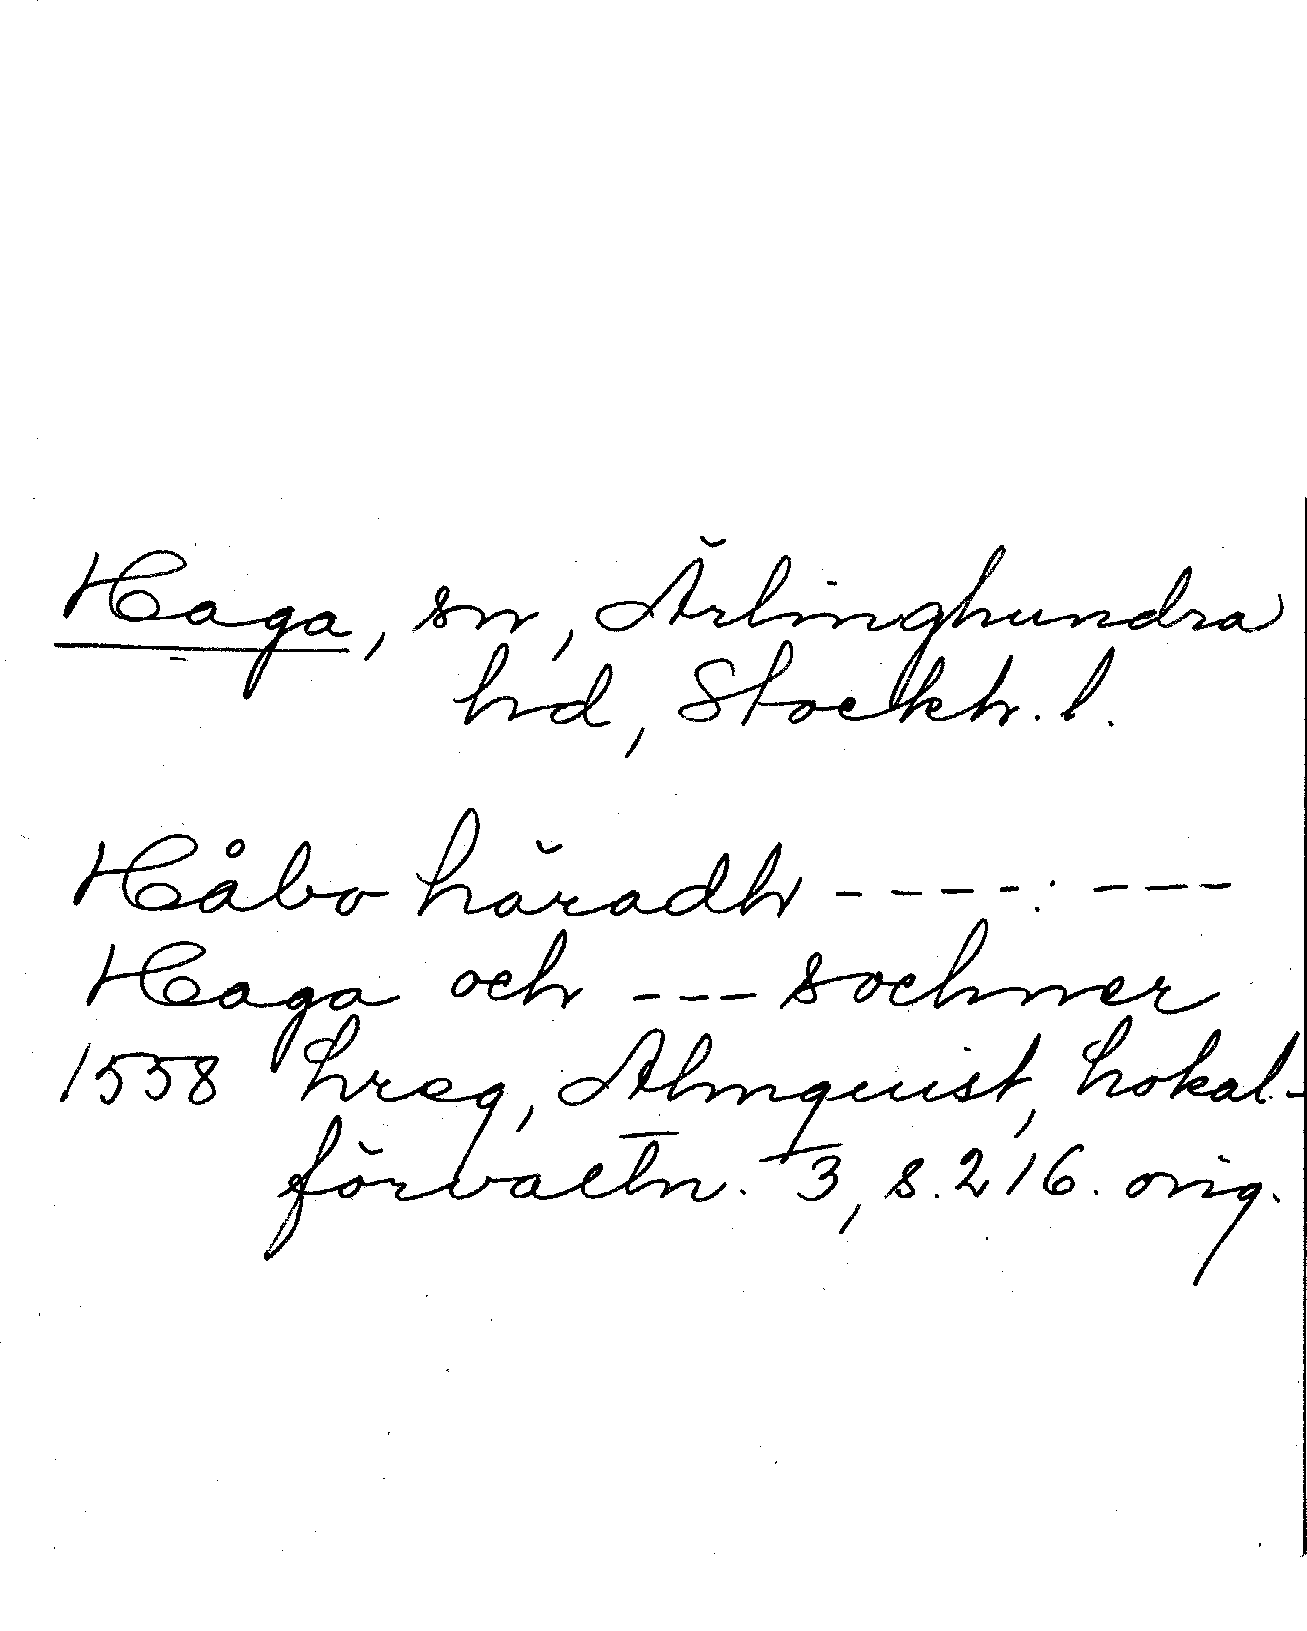 Haga, sn, Ärlinghundra
hd, Stockh. l.
Håbo häradh ----: ---
Haga och --- sochner
1558 hreg, Almquist, Lokal-
förvaltn. 3, s. 216. orig.